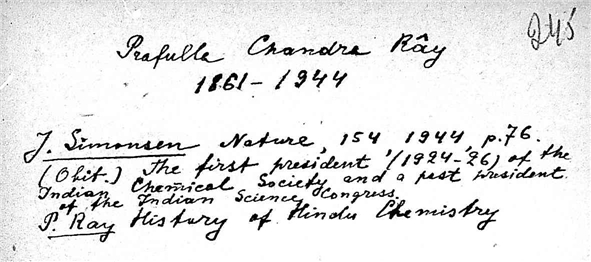 245
Prafulla Chandra Rây
1861-1944
J. Simonsen Nature, 154, 1944, p.76.
(Obit.) The first president (1924-26) of the
Indian Chemical Society and a past president
of the Indian Science Congress.
P. Ray History of Hindu Chemistry